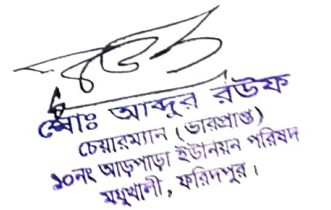 মোঃ আব্দুর রউফ
চেয়ারম্যান (ভারপ্রাপ্ত)
১০নং আড়পাড়া ইউনিয়ন পরিষদ
মধুখালী, ফরিদপুর।